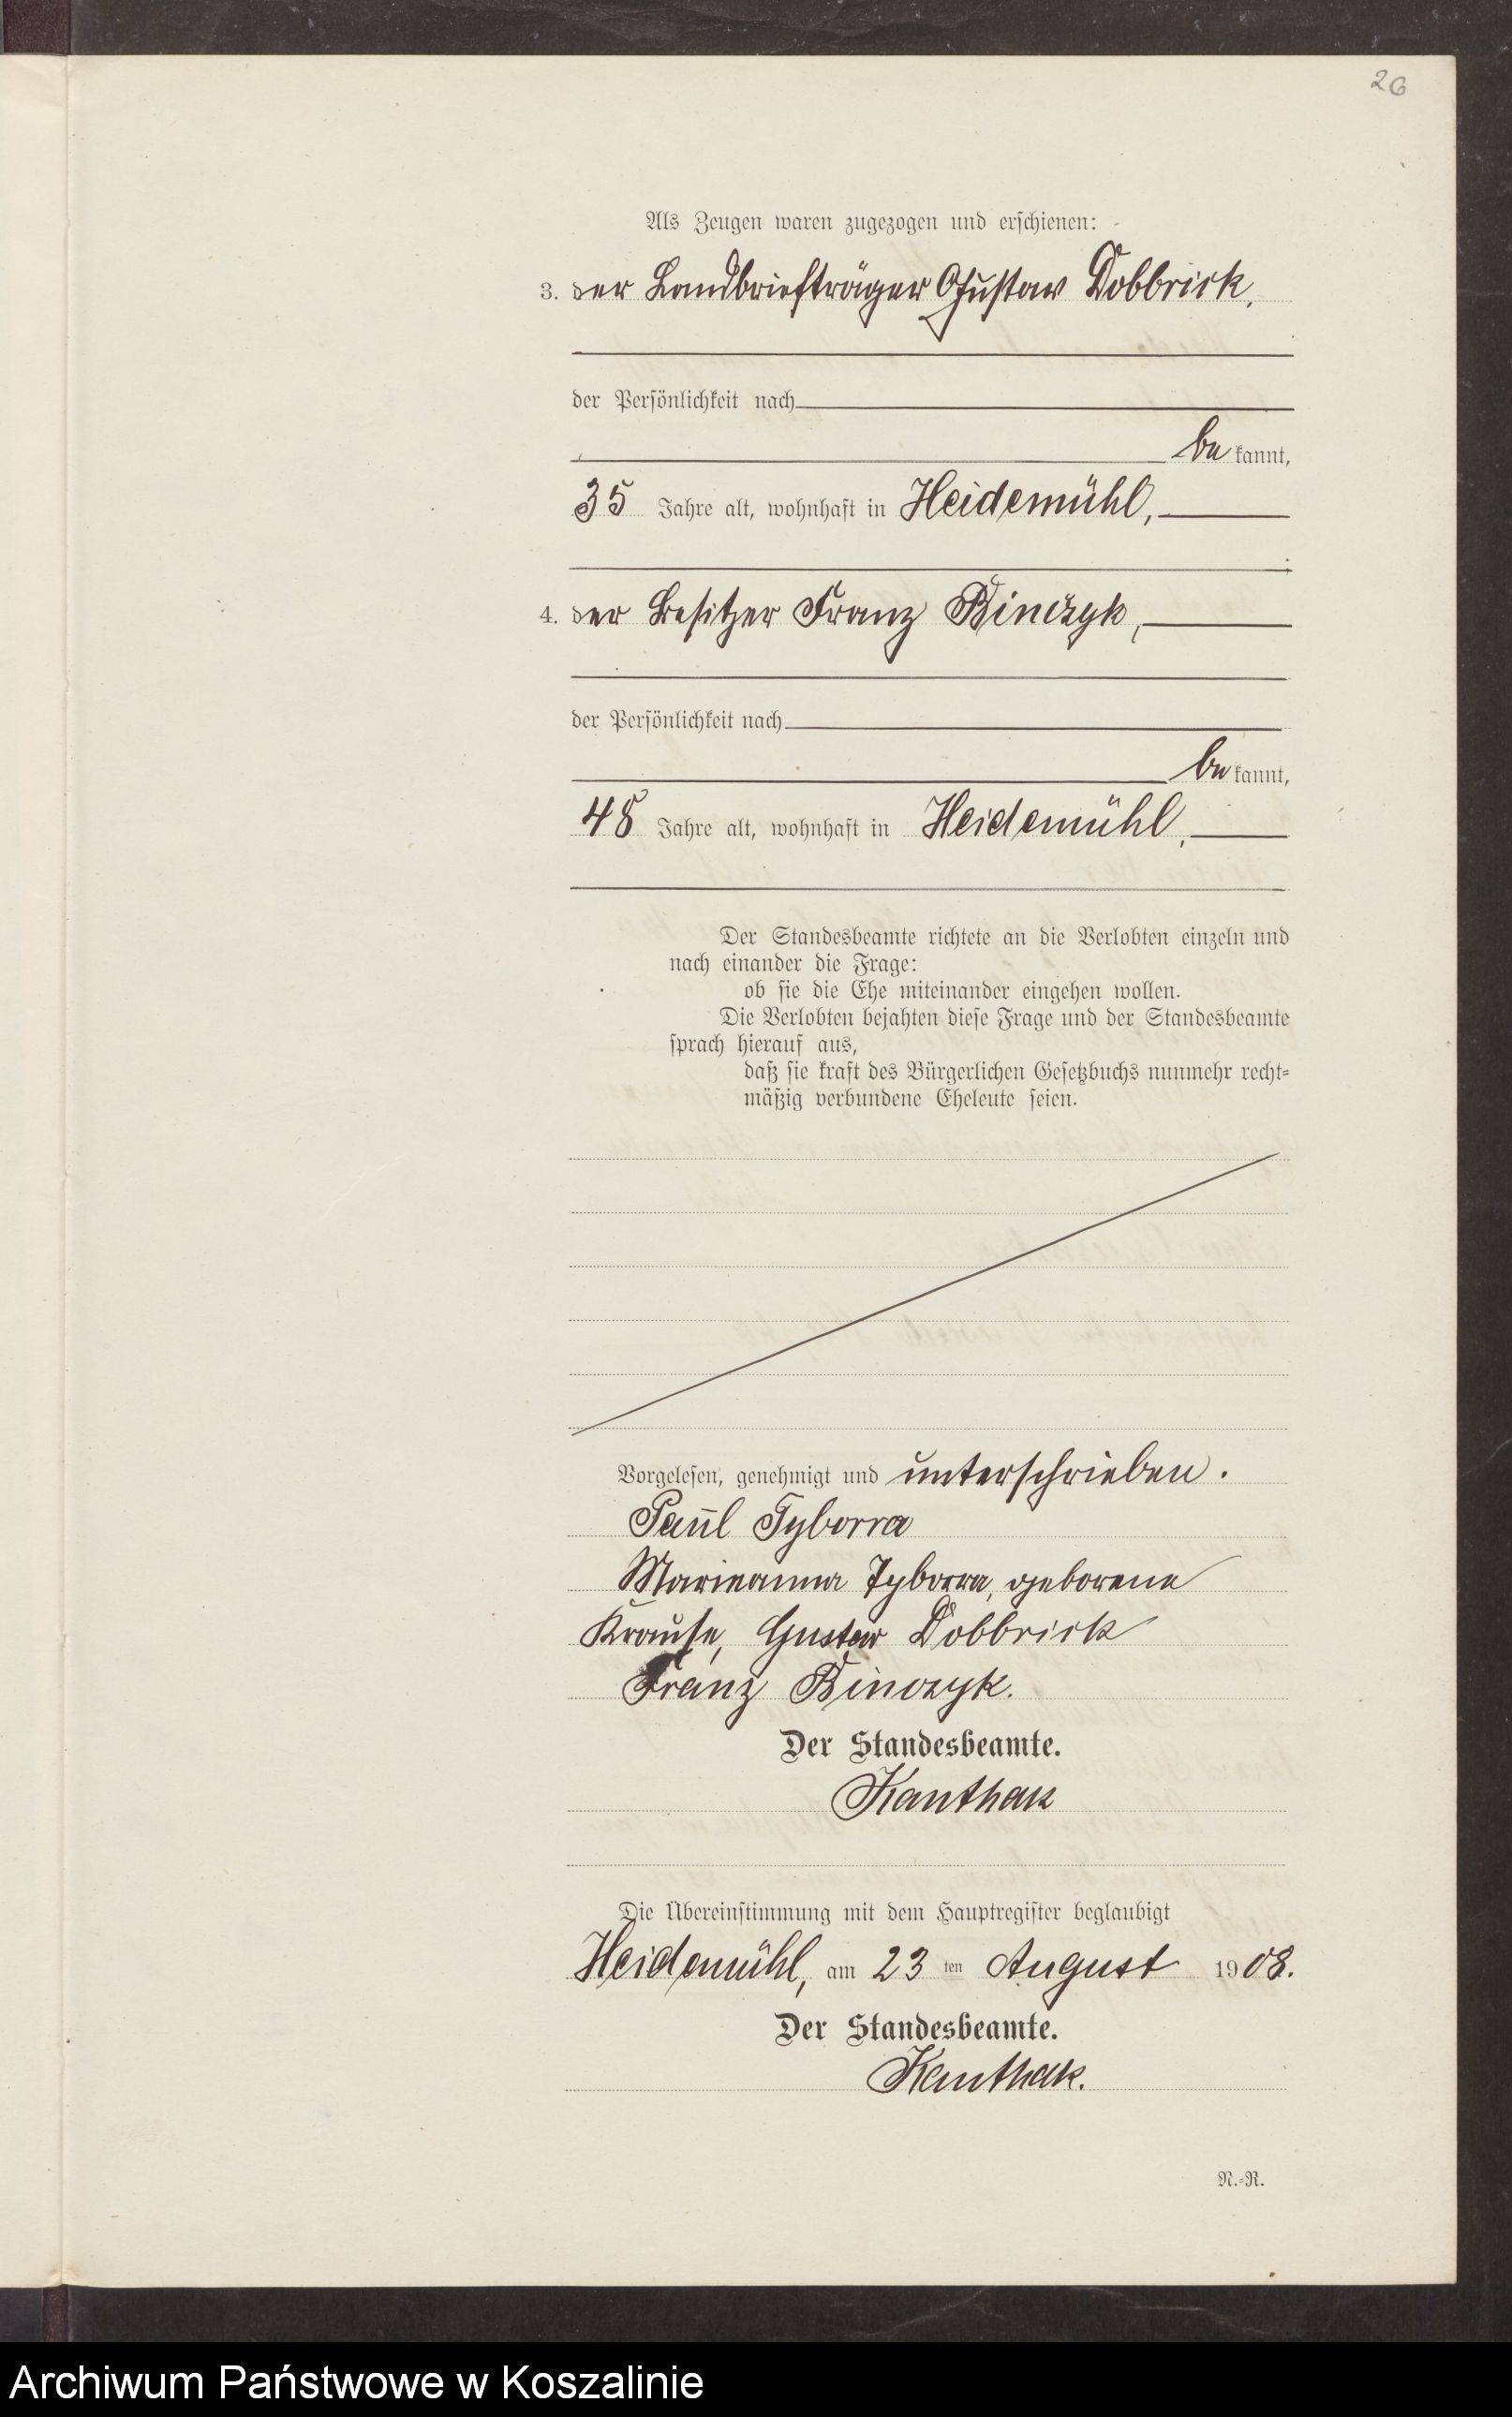 26
Als Zeugen waren zugezogen und erschienen:
3. der Landbriefträger Gustav Dobbrick,
der Persönlichkeit nach
be kannt,
35 Jahre alt, wohnhaft in Heidemühl,
;
4. der Besitzer Franz Binczyk,
der Persönlichkeit nach
be kannt,
48 Jahre alt, wohnhaft in Heidemühl,
Der Standesbeamte richtete an die Verlobten einzeln und
nach einander die Frage:
ob sie die Ehe miteinander eingehen wollen.
Die Verlobten bejahten diese Frage und der Standesbeamte
sprach hierauf aus,
daß sie kraft des Bürgerlichen Gesetzbuchs nunmehr recht-
mäßig verbundene Eheleute seien.
Vorgelesen, genehmigt und unterschrieben.
Paul Tyborra
Marieanna Tyborra, geborene
Krause, Gustav Dobbrick
Franz Binczyk.
Der Standesbeamte.
Kanthak
Die Übereinstimmung mit dem Hauptregister beglaubigt
Heidemühl, am 23 ten August 1908.
Der Standesbeamte.
Kanthak.
N.-R.
Archiwum Państwowe w Koszalinie